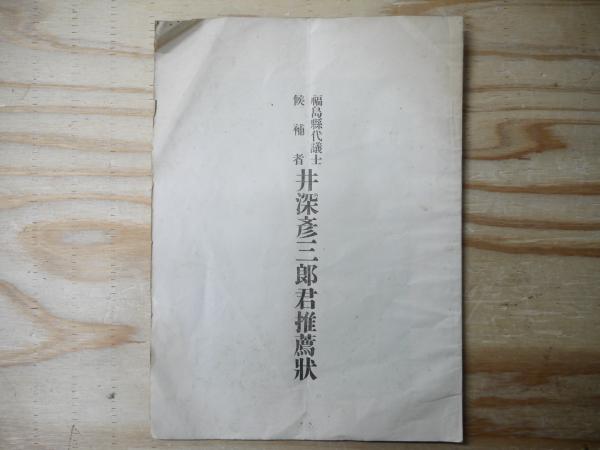 福島縣代議士
候補者
井深彥三郎君推薦狀